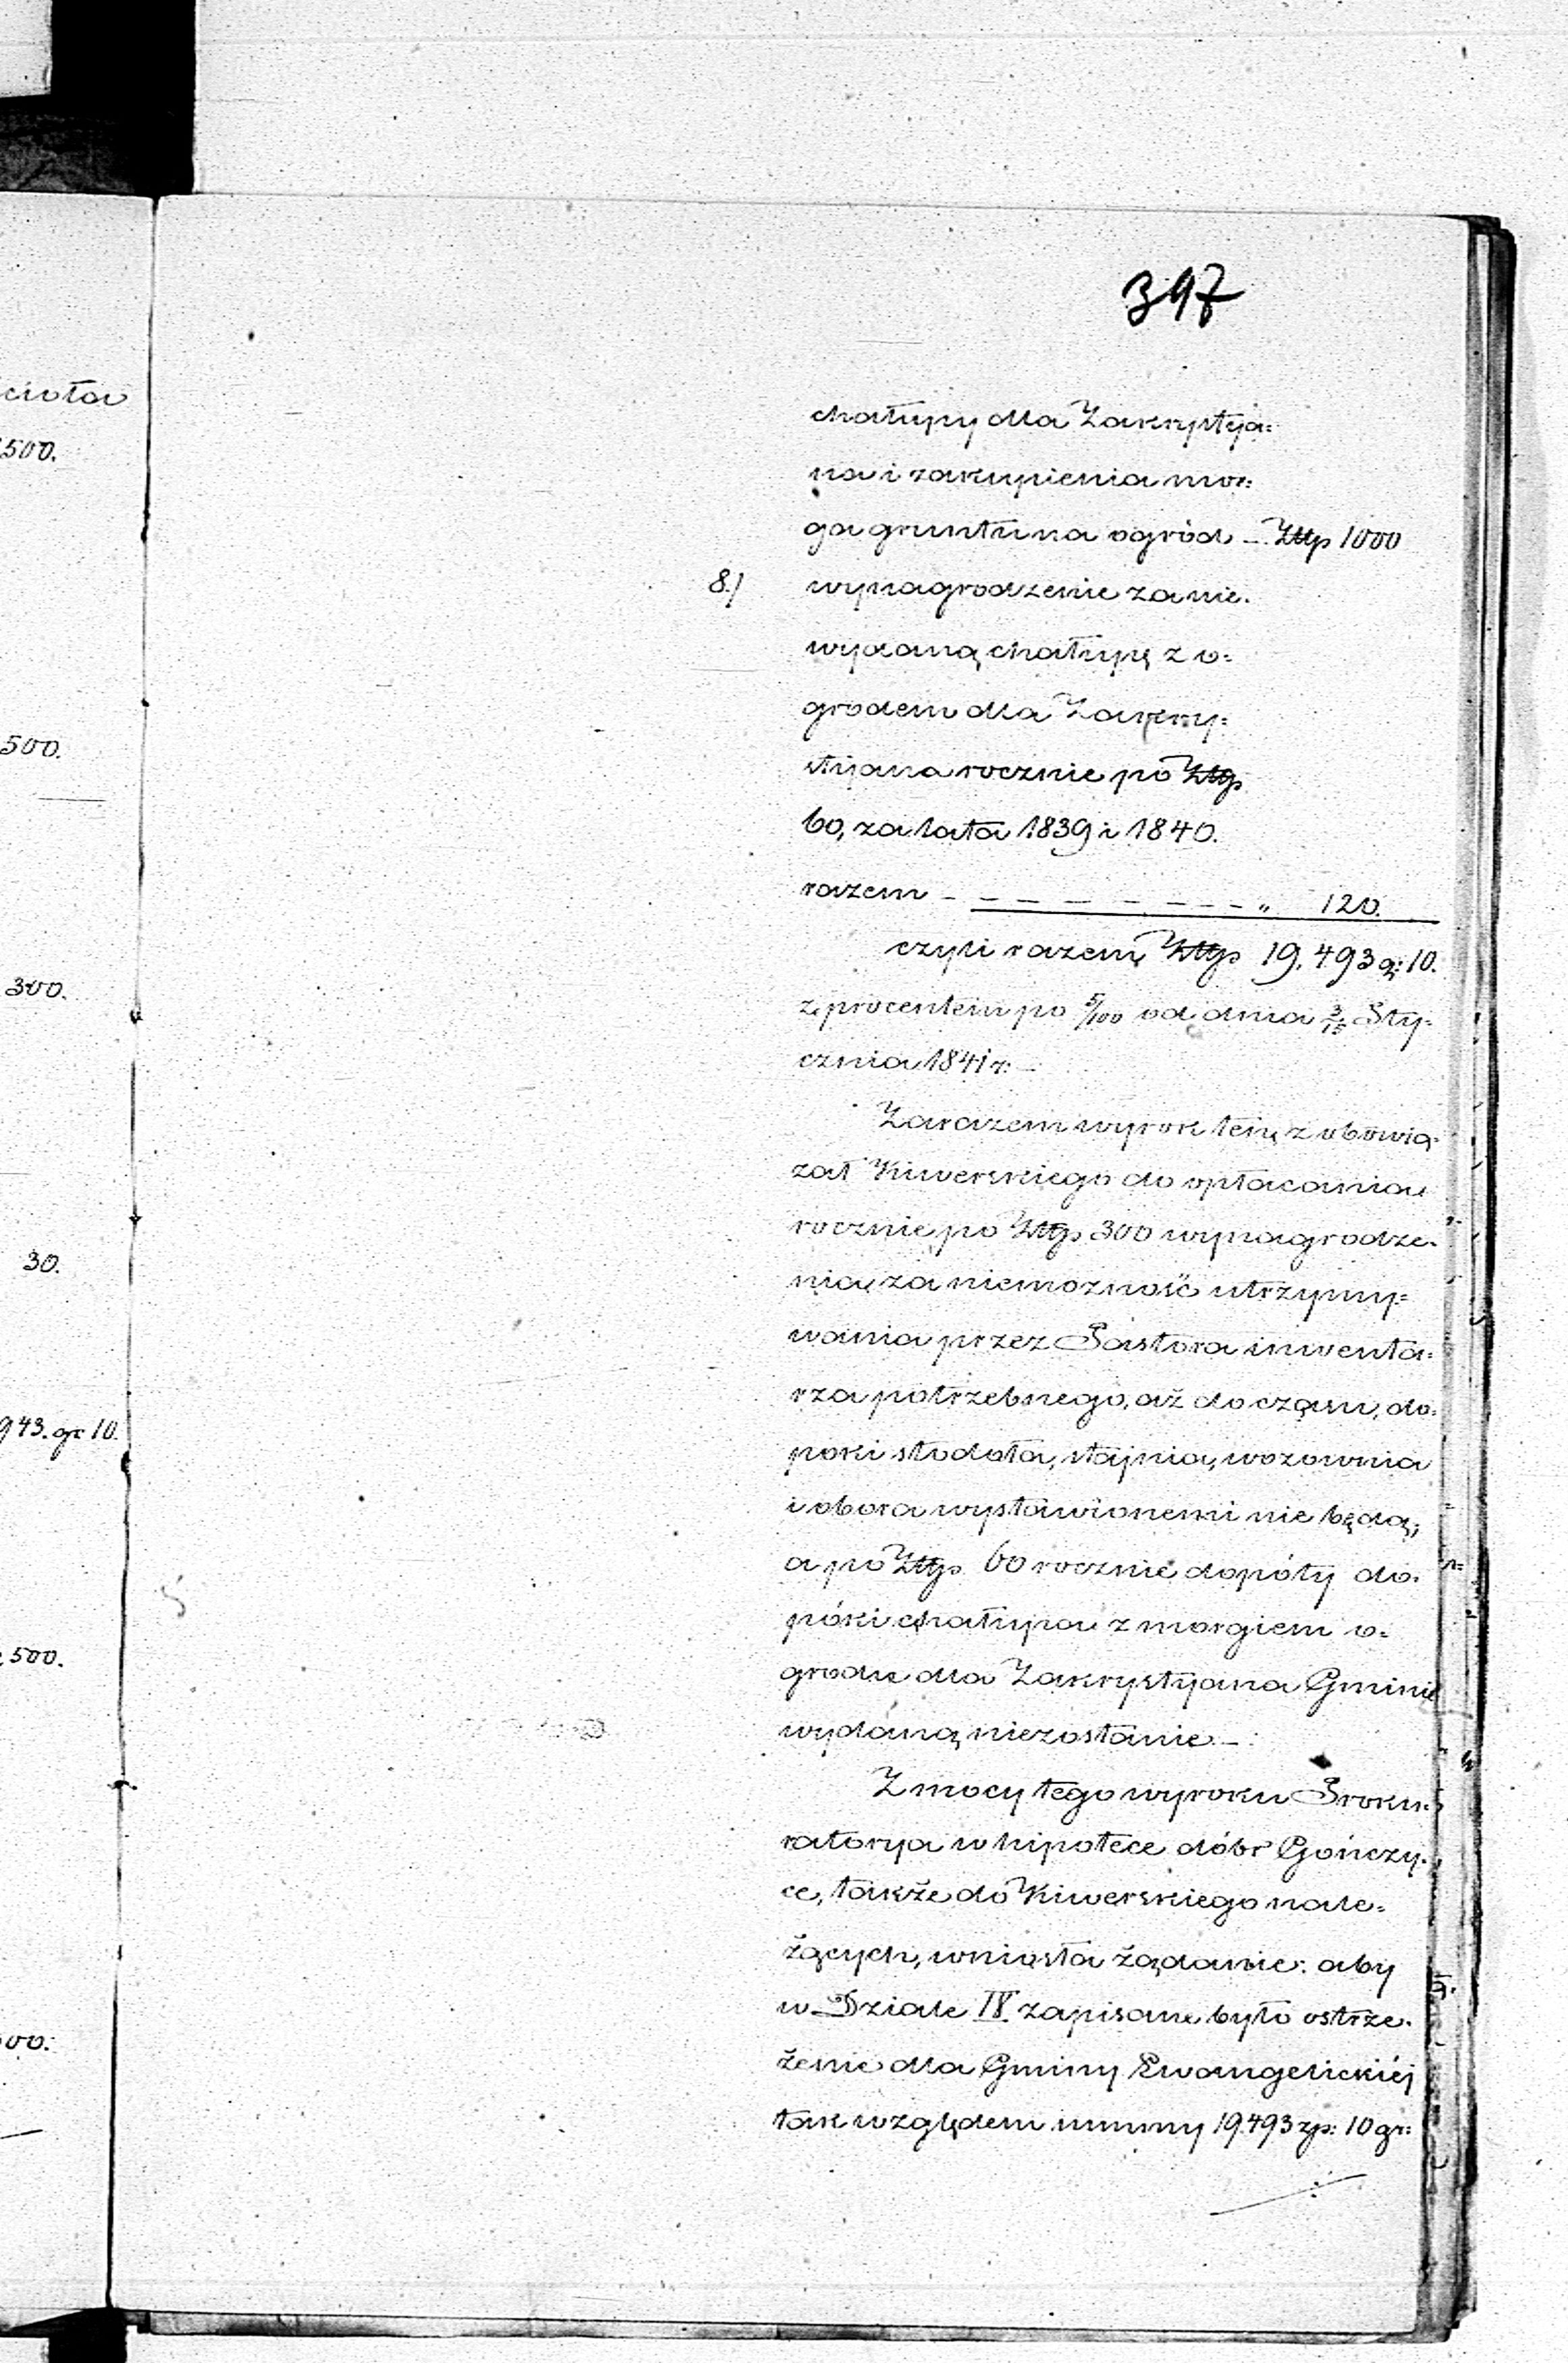 397
chałupy dla Zakrystyja=
na i zakupienia mor=
ga gruntu na ogród – Złtp 1000
8./ wynagrodzenie za nie.
wydaną chałupę z o=
grodem dla Zakry=
styjana rocznie po Złtp
60, za lata 1839 i 1840.
razem – – – – – – – – „ 120.
czyli razem Złtp 19.493 g: 10.
z procentem po 5/100 od dnia 3/15 Sty=
cznia 1841 r: –
Zarazem wyrok ten, z obowią-
zał Kiwerskiego do opłacania
rocznie po Złtp 300 wynagrodze-
nia, za niemożność utrzymy=
wania przez Pastora inwenta=
rza potrzebnego, aż do czasu, do=
poki stodoła, stajnia, wozownia
i obora wystawionemi nie będą;
a po Złtp 60 rocznie dopóty do-
póki chałupa z morgiem o=
grodu dla Zakrystyjana Gminie
wydaną niezostanie –
Z mocy tego wyroku Proku=
ratorya w hipotece dóbr Gończy-
ce, także do Kiwerskiego nale=
żących, wniosła żądanie: aby
w Dziale IV zapisane było ostrze-
żenie dla Gminy Ewangelickiéj
tak względem summy 19493 zp: 10 gr:
cioła
500.
500.
300.
30.
943. gr 10.
500.
00.